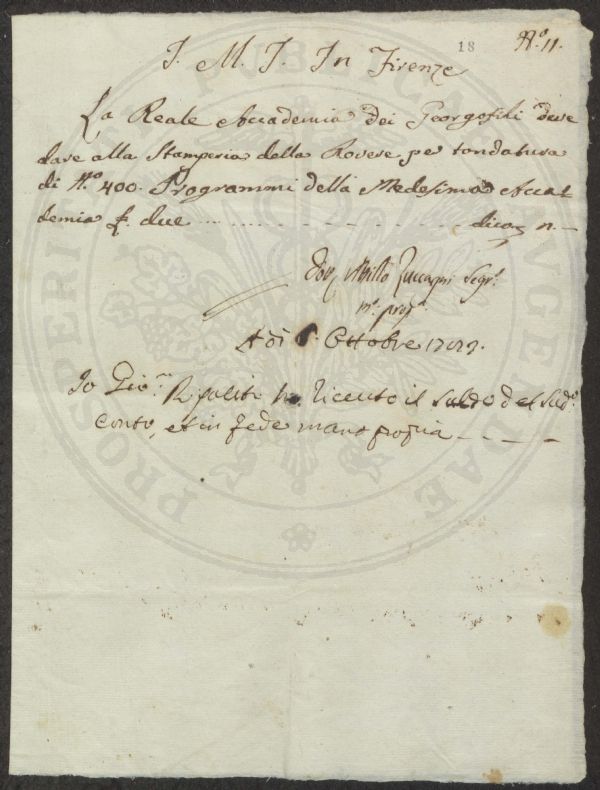 18 N.º 11.
J. M. J. In Firenze
La Reale Accademia dei Georgofili deve
dare alla Stamperia della Rovere per tondatura
di N.º 400. Programmi della Medesima Accad
demia £. due dico n.
Attilio Zuccagni Segr.º
m.º prop.ª
A dì Ottobre
Io Gio: ho riceuto il saldo del Sud.º
conto, et in fede mano propria
PROSPERITATI PUBLICAE AUGENDAE